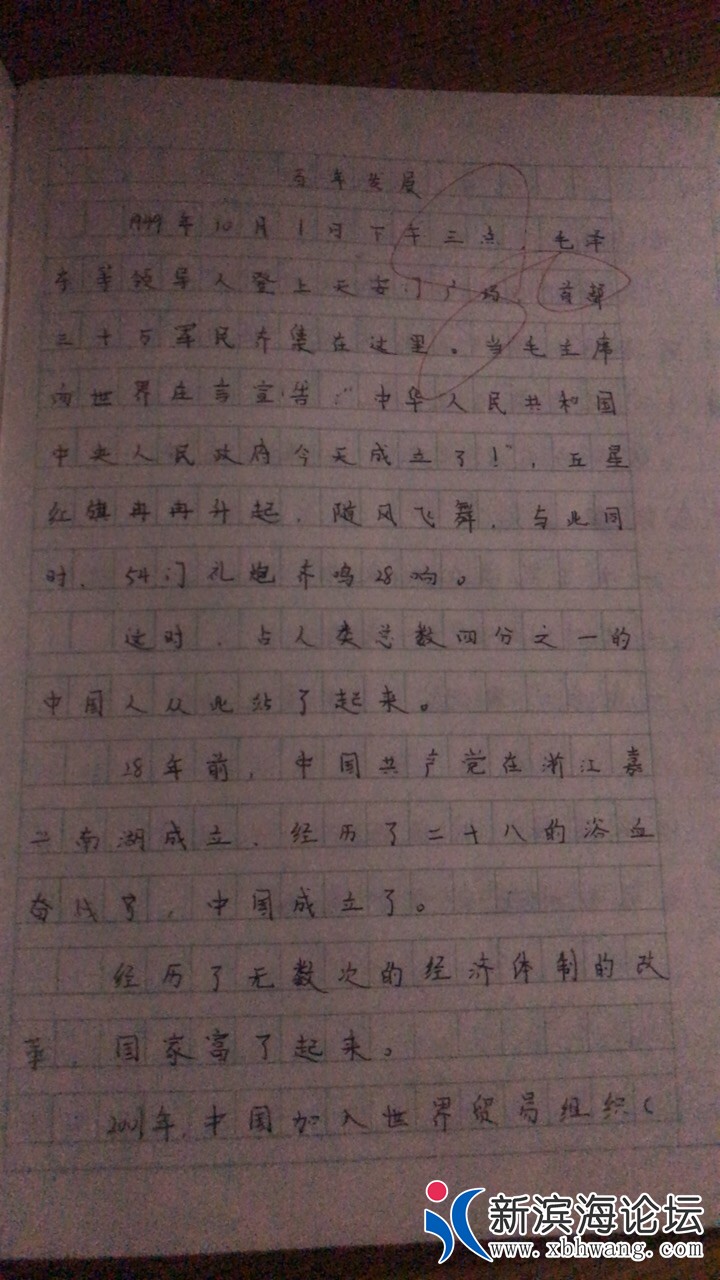 百年发展
1949年10月1日下午三点，毛泽
东等领导人登上天安门广场，首都
三十万军民齐集在这里。当毛主席
向世界庄言宣告：“中华人民共和国
中央人民政府今天成立了！”，五星
红旗冉冉升起，随风飞舞，与此同
时，54门礼炮齐鸣28响。
这时，占人类总数四分之一的
中国人从此站了起来。
28年前，中国共产党在浙江嘉
兴南湖成立，经历了二十八的浴血
奋战，中国成立了。
经历了无数次的经济体制的改
革，国家富了起来。
2001年，中国加入世界贸易组织（
新滨海论坛
www.xbhwang.com